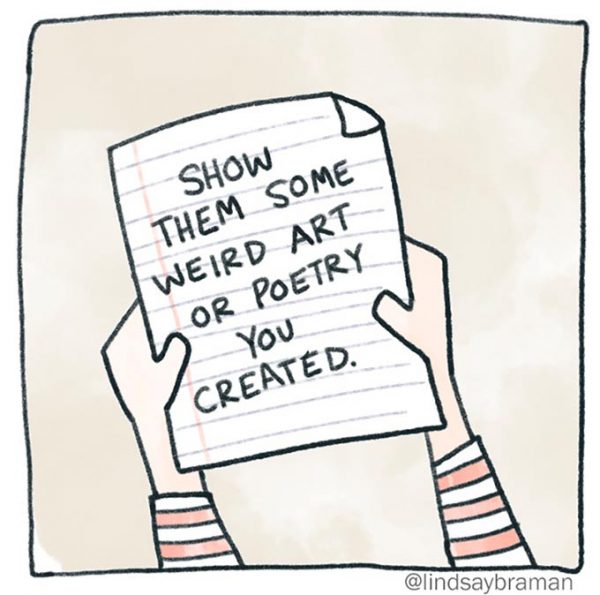 SHOW
THEM SOME
WEIRD ART
OR POETRY
YOU
CREATED.
@lindsaybraman